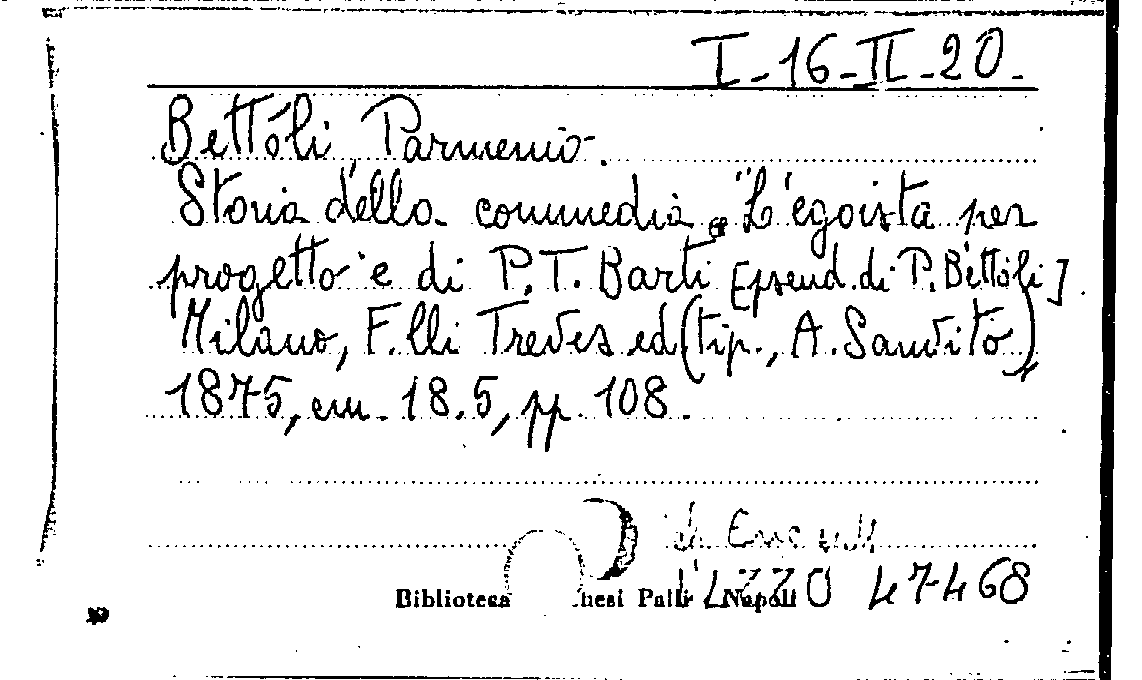 I-16-II-20-
Bettòli, Parmenio.
Storia della commedia "L'egoista per
progetto" e di P.T. Barti [pseud. di P. Bettòli].
Milano, F.lli Treves ed (tip., A. Sanvito),
1875, cm. 18.5, pp. 108.
47468
Biblioteca Napoli